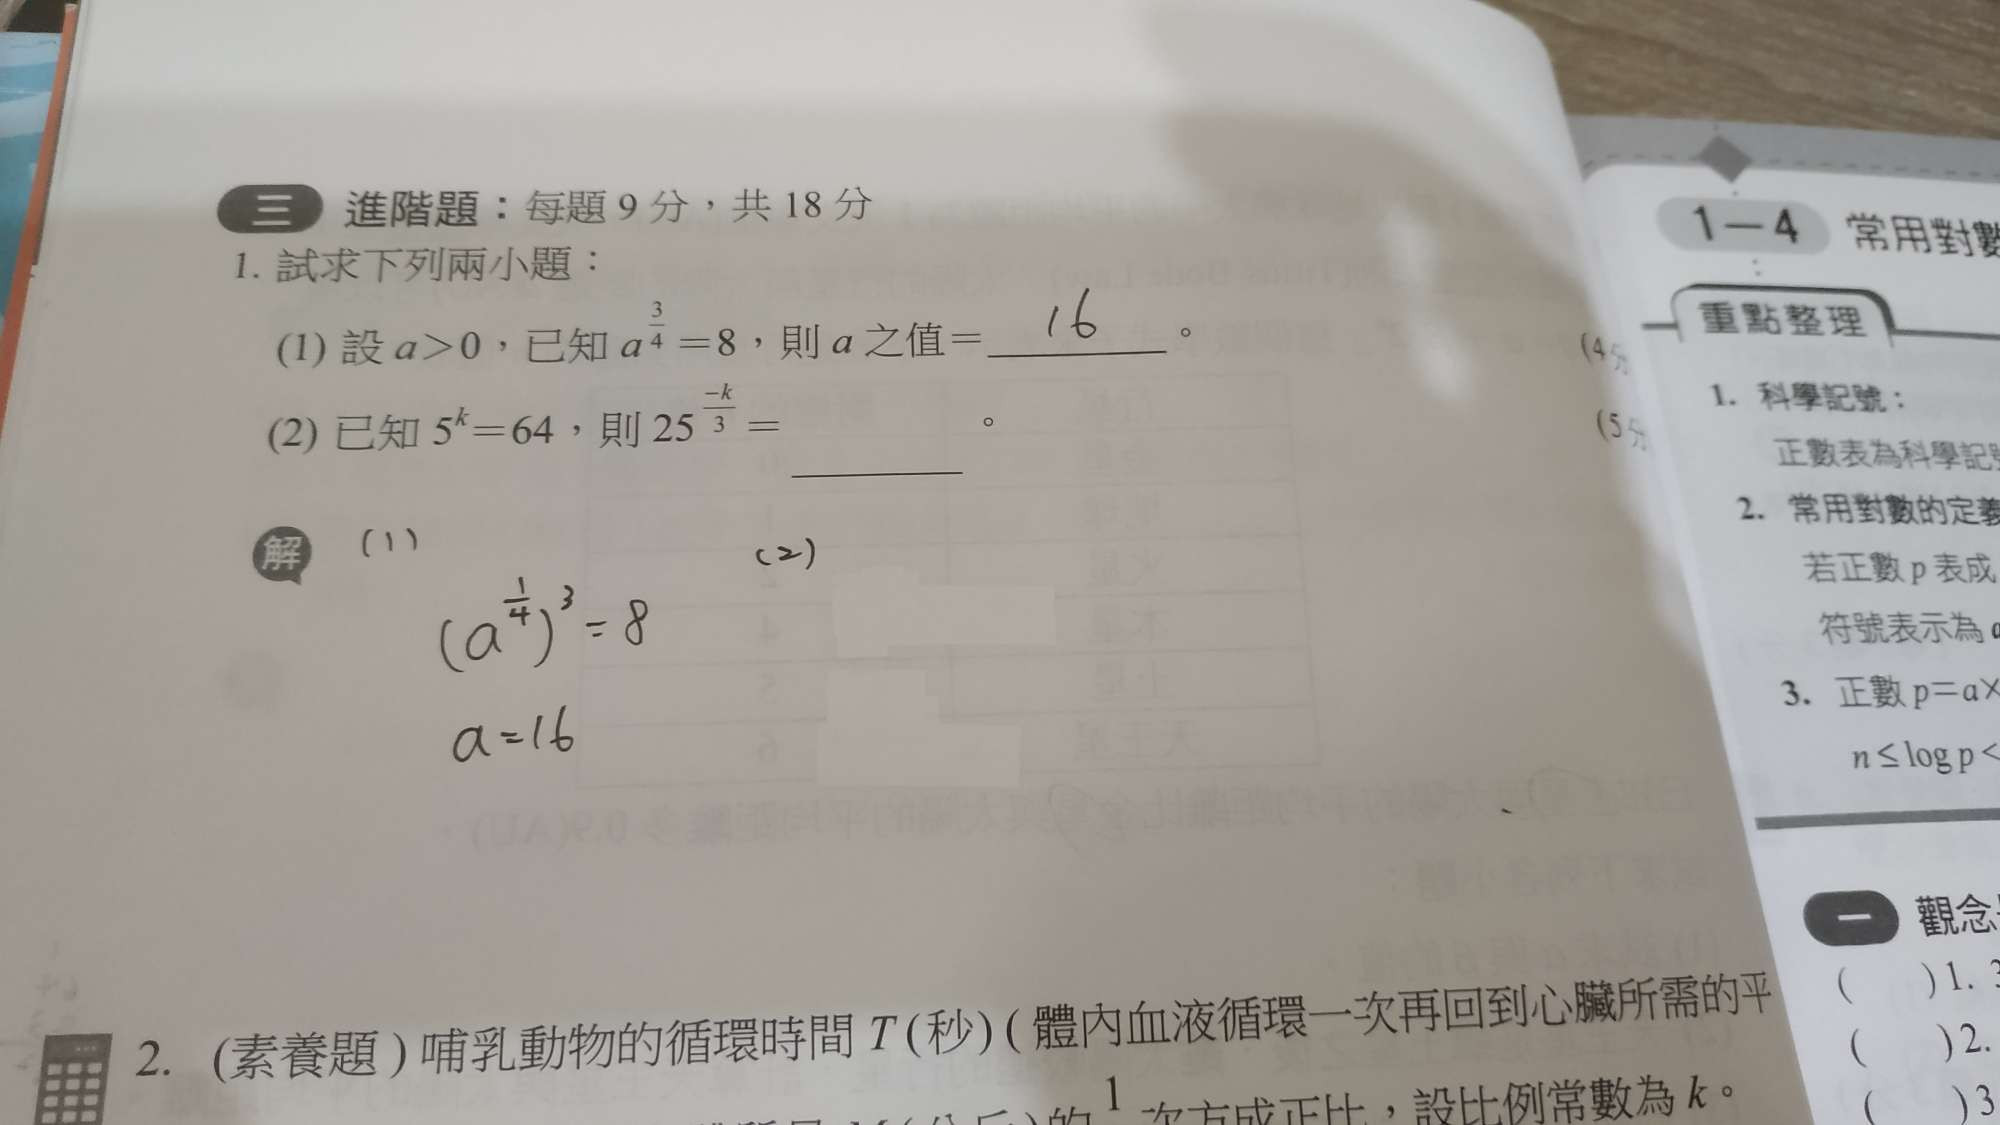 三 進階題：每題 9 分，共 18 分
1. 試求下列兩小題：
(1) 設 a>0，已知 a^{3/4}=8，則 a 之值= 16 。 (4分
(2) 已知 5^k=64，則 25^{-k/3}= 。 (5分
解 (1) (2)
(a^{1/4})^3=8
a=16
2. (素養題) 哺乳動物的循環時間 T(秒)(體內血液循環一次再回到心臟所需的平
的 1 次方成正比，設比例常數為 k。
1－4 常用對數
重點整理
1. 科學記號：
正數表為科學記號
2. 常用對數的定義
若正數 p 表成
符號表示為 a
3. 正數 p=a×
n≤log p<
一 觀念
( )1. 3
( )2.
( )3